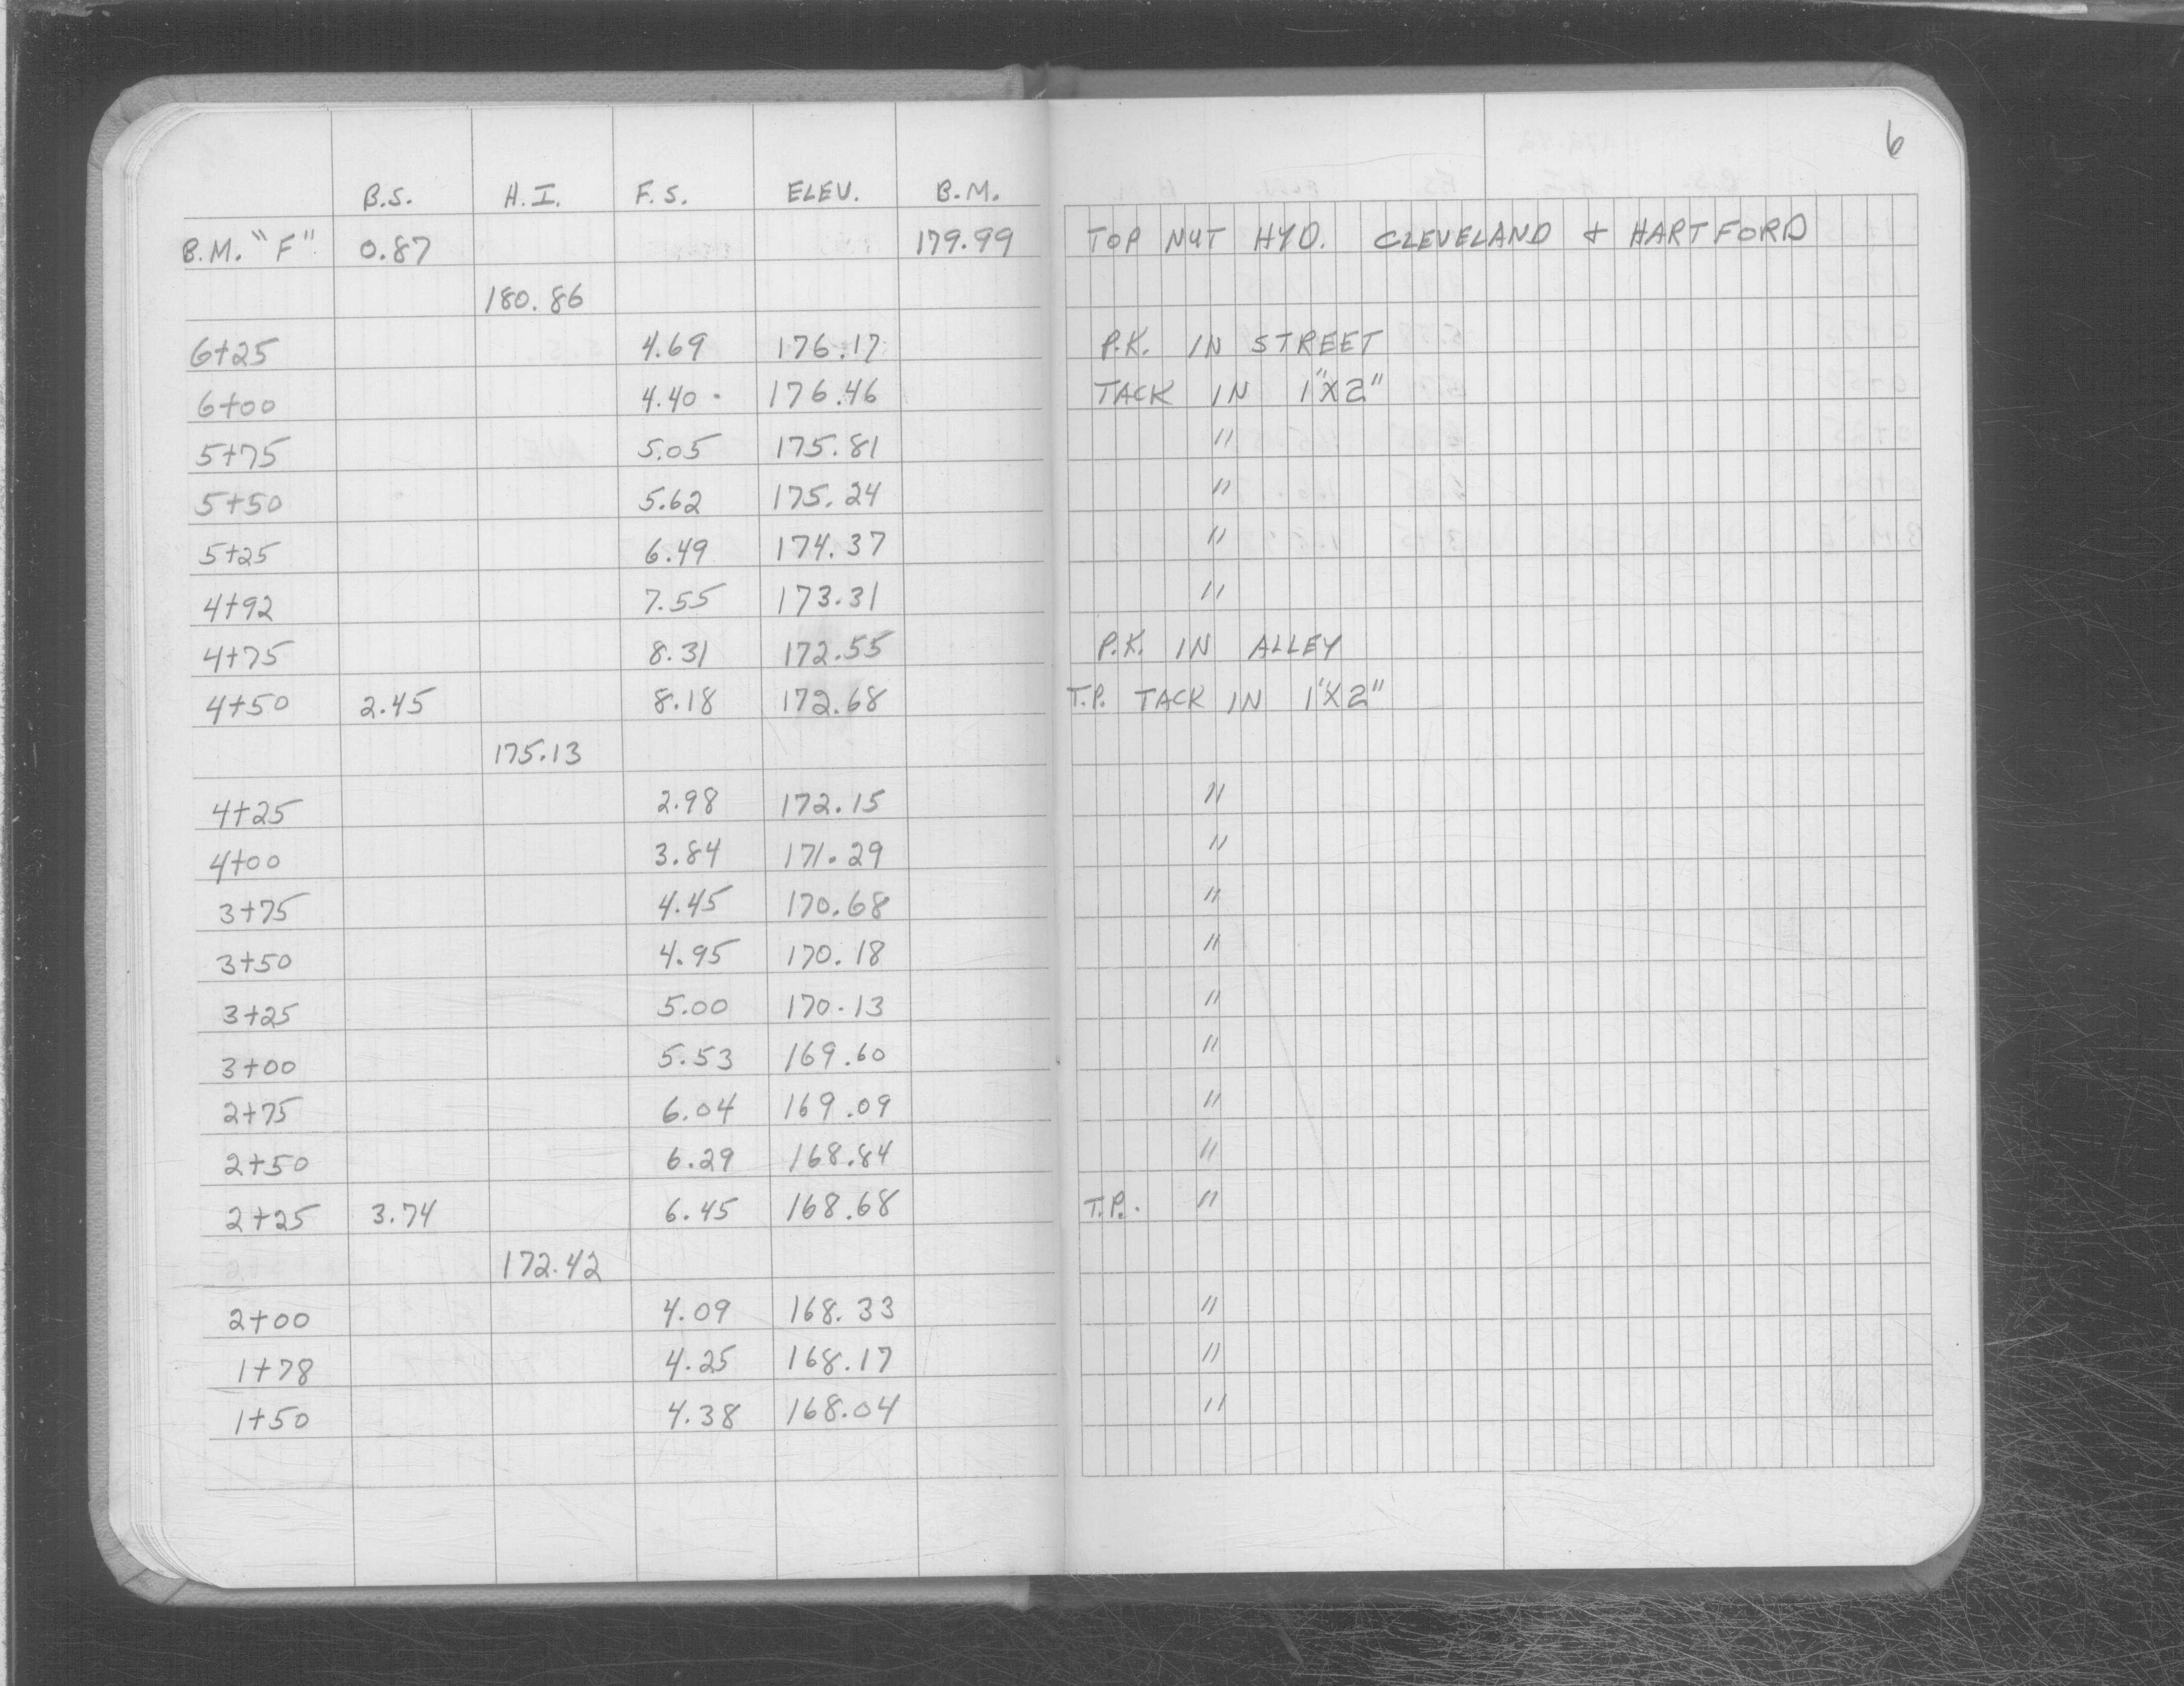 6
B.S. H.I. F.S. ELEV. B.M.
B.M. "F" 0.87 179.99 TOP NUT HYD. CLEVELAND & HARTFORD
180.86
6+25 4.69 176.17 P.K. IN STREET
6+00 4.40 176.46 TACK IN 1"X2"
5+75 5.05 175.81 "
5+50 5.62 175.24 "
5+25 6.49 174.37 "
4+92 7.55 173.31 "
4+75 8.31 172.55 P.K. IN ALLEY
4+50 2.45 8.18 172.68 T.P. TACK IN 1"X2"
175.13
4+25 2.98 172.15 "
4+00 3.84 171.29 "
3+75 4.45 170.68 "
3+50 4.95 170.18 "
3+25 5.00 170.13 "
3+00 5.53 169.60 "
2+75 6.04 169.09 "
2+50 6.29 168.84 "
2+25 3.74 6.45 168.68 T.P. "
172.42
2+00 4.09 168.33 "
1+78 4.25 168.17 "
1+50 4.38 168.04 "